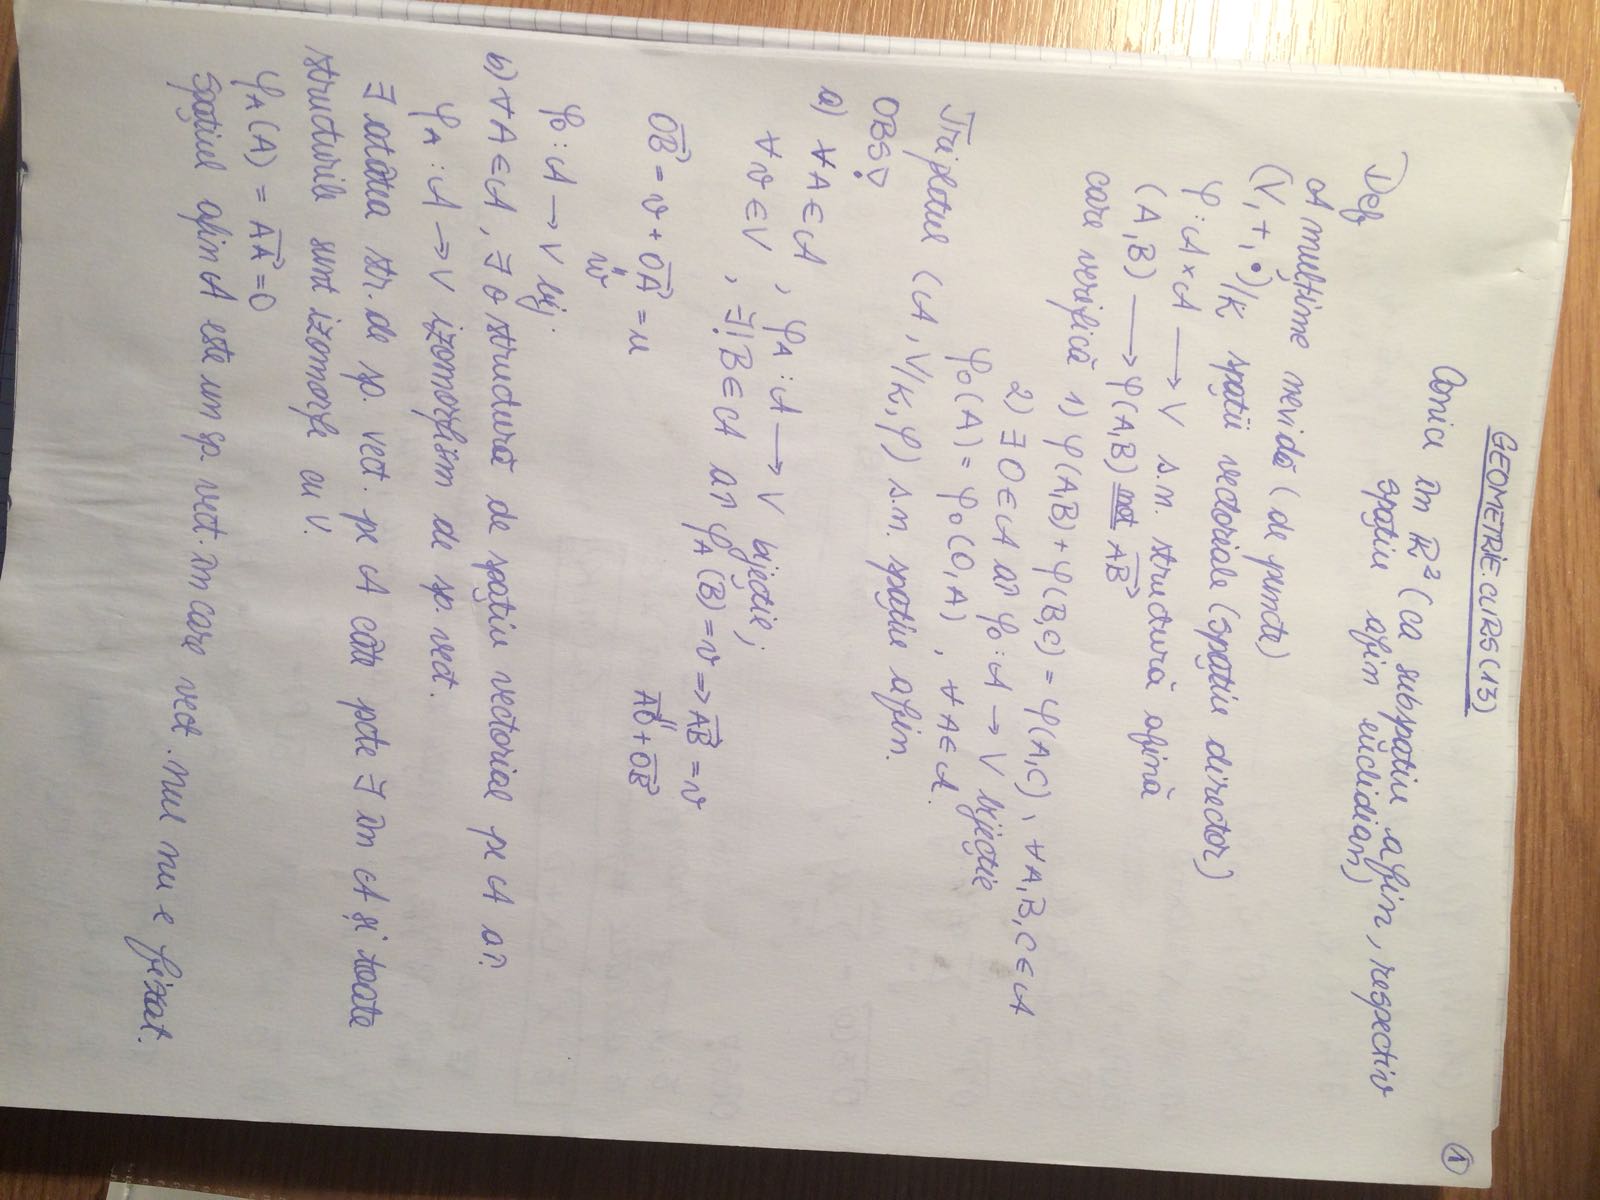 GEOMETRIE. CURS (13)
①
Conici în ℝ² (ca subspațiu afin, respectiv
spațiu afin euclidian)
Def
𝒜 mulțime nevidă (de puncte)
(V, +, •)/K spații vectoriale (spațiu director)
φ : 𝒜 × 𝒜 → V s.n. structură afină
(A,B) → φ(A,B) not AB⃗
care verifică 1) φ(A,B) + φ(B,C) = φ(A,C), ∀A,B,C ∈ 𝒜
2) ∃ O ∈ 𝒜 aî φ₀ : 𝒜 → V bijecție
φ₀(A) = φ₀(O,A), ∀A ∈ 𝒜.
Tripletul (𝒜, V/K, φ) s.n. spațiu afin.
OBS
a) ∀A ∈ 𝒜, φ_A : 𝒜 → V bijecție;
∀v ∈ V, ∃! B ∈ 𝒜 aî φ_A(B) = v ⇒ AB⃗ = v
AO⃗ + OB⃗
OB⃗ = v + OA⃗ = u
w
φ₀ : 𝒜 → V bij.
b) ∀A ∈ 𝒜, ∃ o structură de spațiu vectorial pe 𝒜 aî.
φ_A : 𝒜 → V izomorfism de sp. vect.
∃ atâtea str. de sp. vect. pe 𝒜 câte pcte ∃ în 𝒜 și toate
structurile sunt izomorfe cu V.
φ_A(A) = AA⃗ = 0
Spațiul afin 𝒜 este un sp. vect. în care vect. nul nu e fixat.